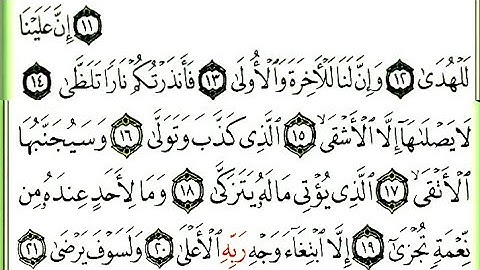 ١١ إِنَّ عَلَيْنَا
لَلْهُدَىٰ ١٢ وَإِنَّ لَنَا لَلْأٓخِرَةَ وَٱلْأُولَىٰ ١٣ فَأَنذَرْتُكُمْ نَارًا تَلَظَّىٰ ١٤
لَا يَصْلَىٰهَآ إِلَّا ٱلْأَشْقَى ١٥ ٱلَّذِى كَذَّبَ وَتَوَلَّىٰ ١٦ وَسَيُجَنَّبُهَا
ٱلْأَتْقَى ١٧ ٱلَّذِى يُؤْتِى مَالَهُۥ يَتَزَكَّىٰ ١٨ وَمَا لِأَحَدٍ عِندَهُۥ مِن
نِّعْمَةٍ تُجْزَىٰٓ ١٩ إِلَّا ٱبْتِغَآءَ وَجْهِ رَبِّهِ ٱلْأَعْلَىٰ ٢٠ وَلَسَوْفَ يَرْضَىٰ ٢١